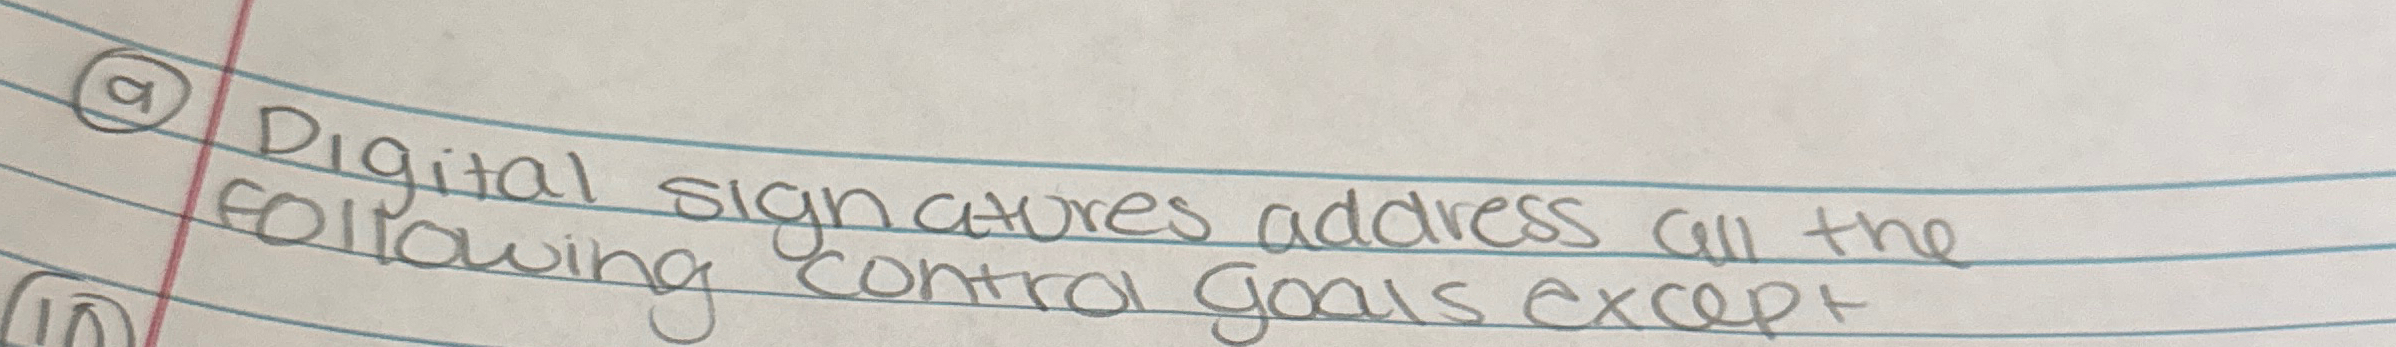 9 Digital signatures address all the
following control goals except
10